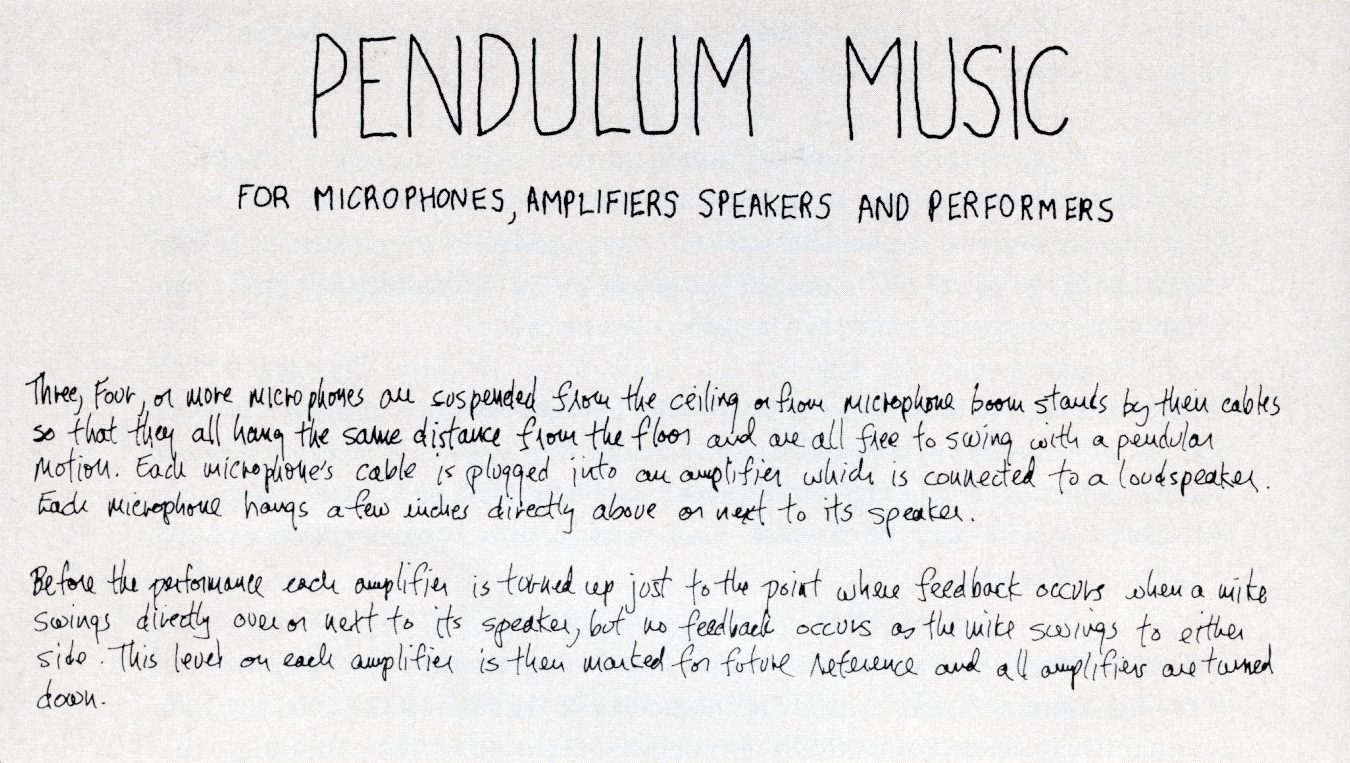 PENDULUM MUSIC
FOR MICROPHONES, AMPLIFIERS SPEAKERS AND PERFORMERS
Three, Four, or more microphones are suspended from the ceiling or from microphone boom stands by their cables
so that they all hang the same distance from the floor and are all free to swing with a pendular
motion. Each microphone's cable is plugged into an amplifier which is connected to a loudspeaker.
Each microphone hangs a few inches directly above or next to its speaker.
Before the performance each amplifier is turned up just to the point where feedback occurs when a mike
swings directly over or next to its speaker, but no feedback occurs as the mike swings to either
side. This level on each amplifier is then marked for future reference and all amplifiers are turned
down.